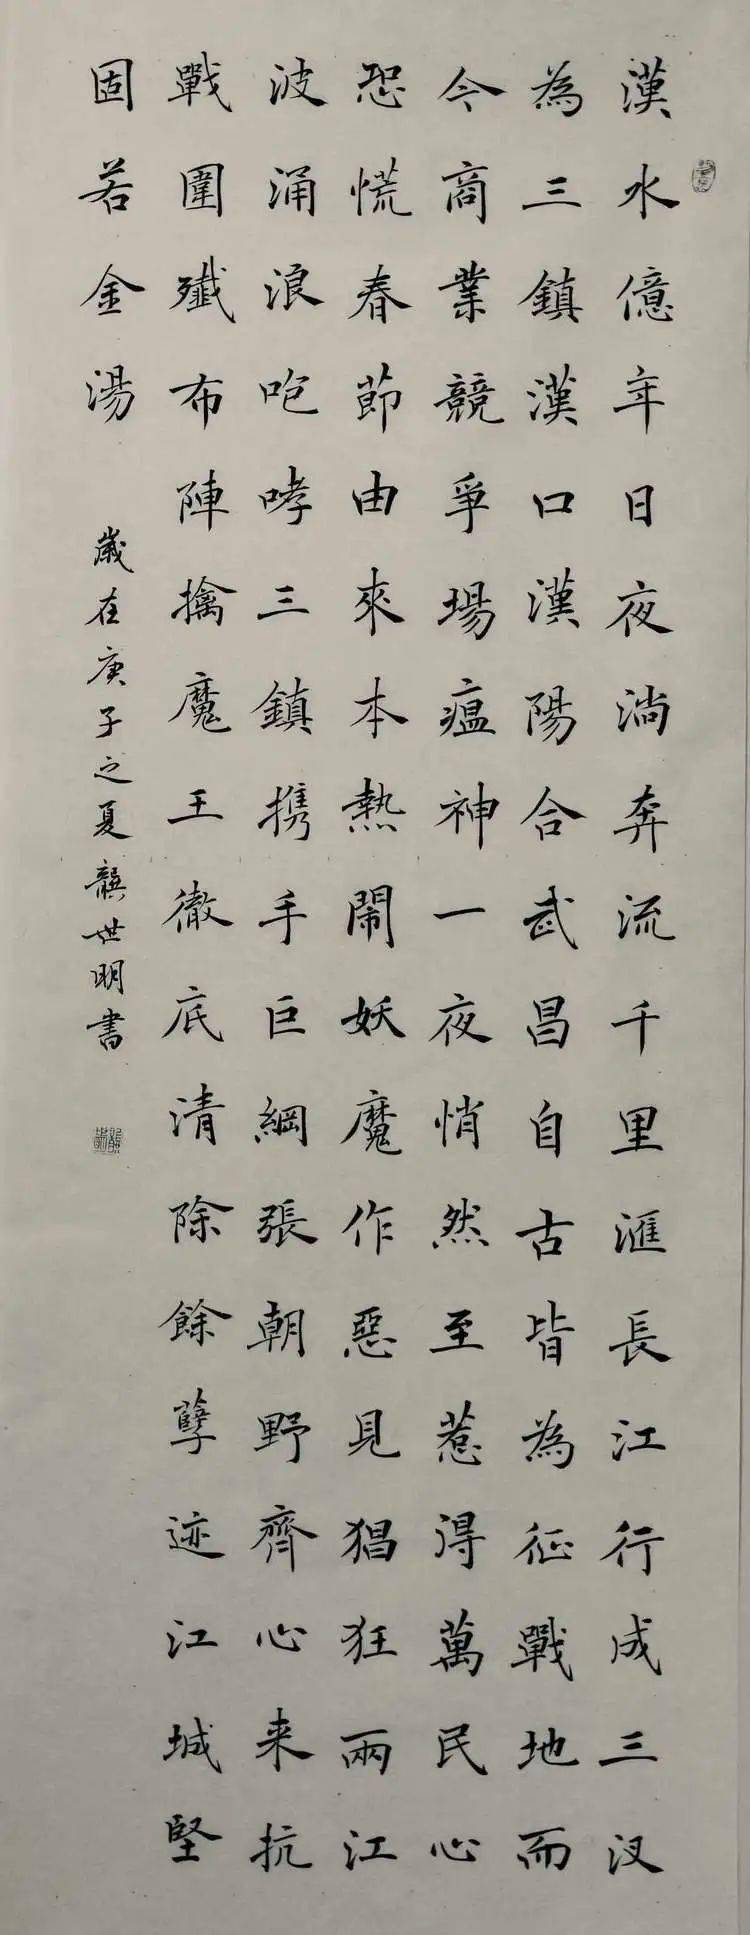 漢水億年日夜淌奔流千里滙長江行成三汊
為三鎮漢口漢陽合武昌自古皆為征戰地而
今商業競爭場瘟神一夜悄然至惹得萬民心
恐慌春節由來本熱鬧妖魔作惡見猖狂兩江
波涌浪咆哮三鎮携手巨綱張朝野齊心来抗
戰圍殲布陣擒魔王徹底清除餘孽迹江城堅
固若金湯
歲在庚子之夏龔世明書